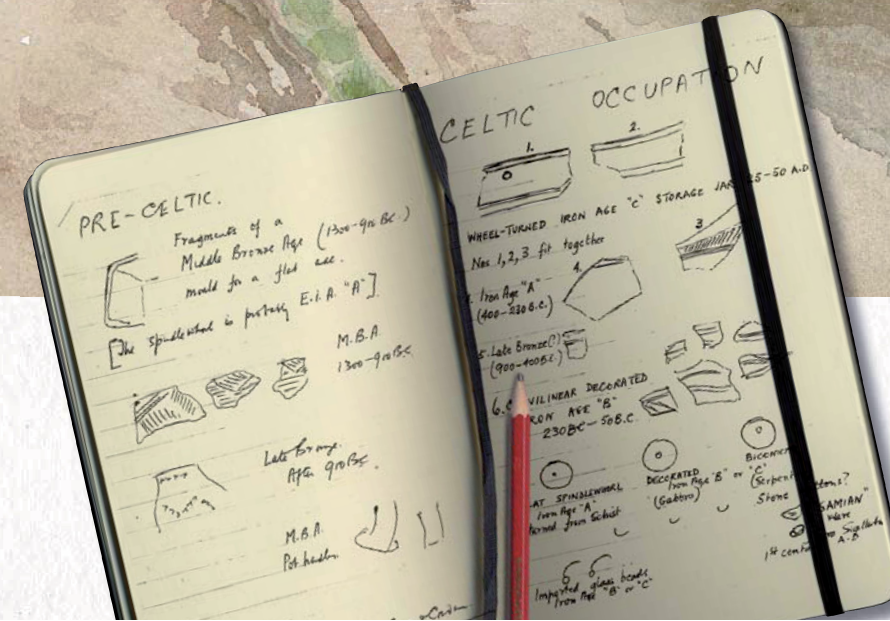 PRE-CELTIC.
Fragments of a
Middle Bronze Age (1300-900 BC.)
mould for a flat axe.
[The spindlewhorl is probably E.I.A. "A"]
M.B.A.
1300-900 BC.
Late Bronze.
After 900 BC.
M.B.A.
Pot handles
CELTIC OCCUPATION
1.
2.
WHEEL-TURNED IRON AGE "C" STORAGE JAR 25-50 A.D
Nos 1, 2, 3 fit together
3
4.
Iron Age "A"
(400-230 B.C.)
5. Late Bronze (?)
(900-400 B.C.)
6. VILINEAR DECORATED
RON AGE "B"
230 BC - 50 B.C.
AT SPINDLEWHORL
Iron Age "A"
turned from Schist
DECORATED
Iron Age "B" or "C"
(Gabbro)
BICONI
(Serpent
Stone
ttons?
"SAMIAN"
Ware
1st cent
A-D
Imported glass beads
Iron Age "B" or "C"